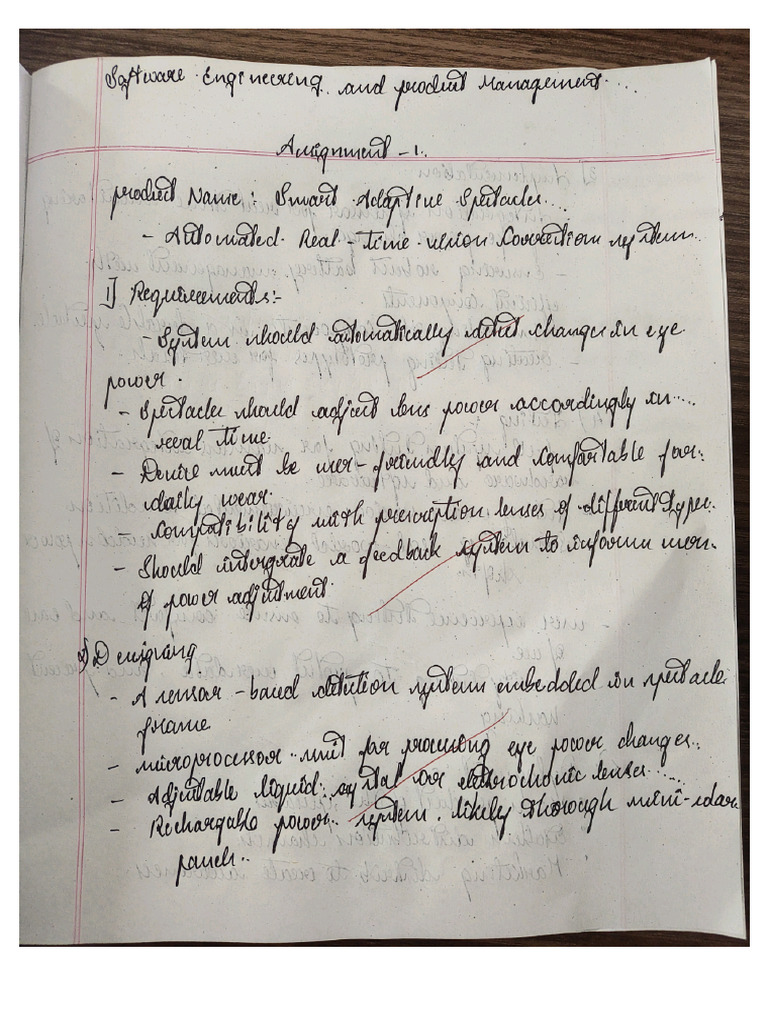 Software Engineering and product Management....
Assignment - 1.
product Name: Smart Adaptive Spectacles...
- Automated Real-time vision Correction system
1) Requirements:-
- System should automatically detect changes in eye
power.
- Spectacles should adjust lens power accordingly in....
real time.
- Device must be user-friendly and comfortable for
daily wear.
- Compatibility with prescription lenses of different types.
- Should intergrate a feedback system to inform user
of power adjustment.
2) Designing
- A sensor-based detection system embedded in spectacle
frame
- microprocessor unit for processing eye power changes..
- Adjustable liquid crystal or electrochonic lenses.....
- Rechargable power system. likely thorough mini-solar
panels..